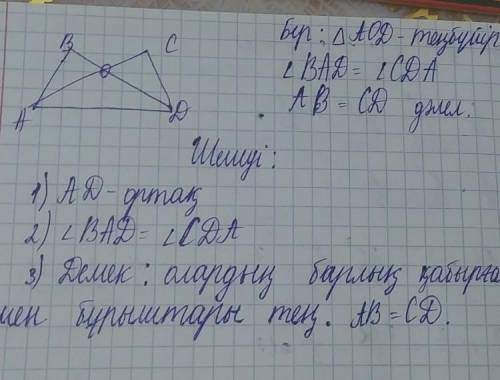 B C
O
A D
Бер: △ AOD - теңбүйір
∠BAD = ∠CDA
AB = CD дәлел.
Шешуі:
1) AD - ортақ
2) ∠BAD = ∠CDA
3) Демек: олардың барлық қабырға
мен бұрыштары тең. AB = CD.